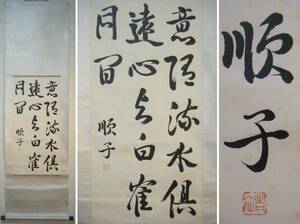 意随流水俱
遠心与白雲
同閒
順子
意随流水俱
遠心与白雲
同閒
順子
順子